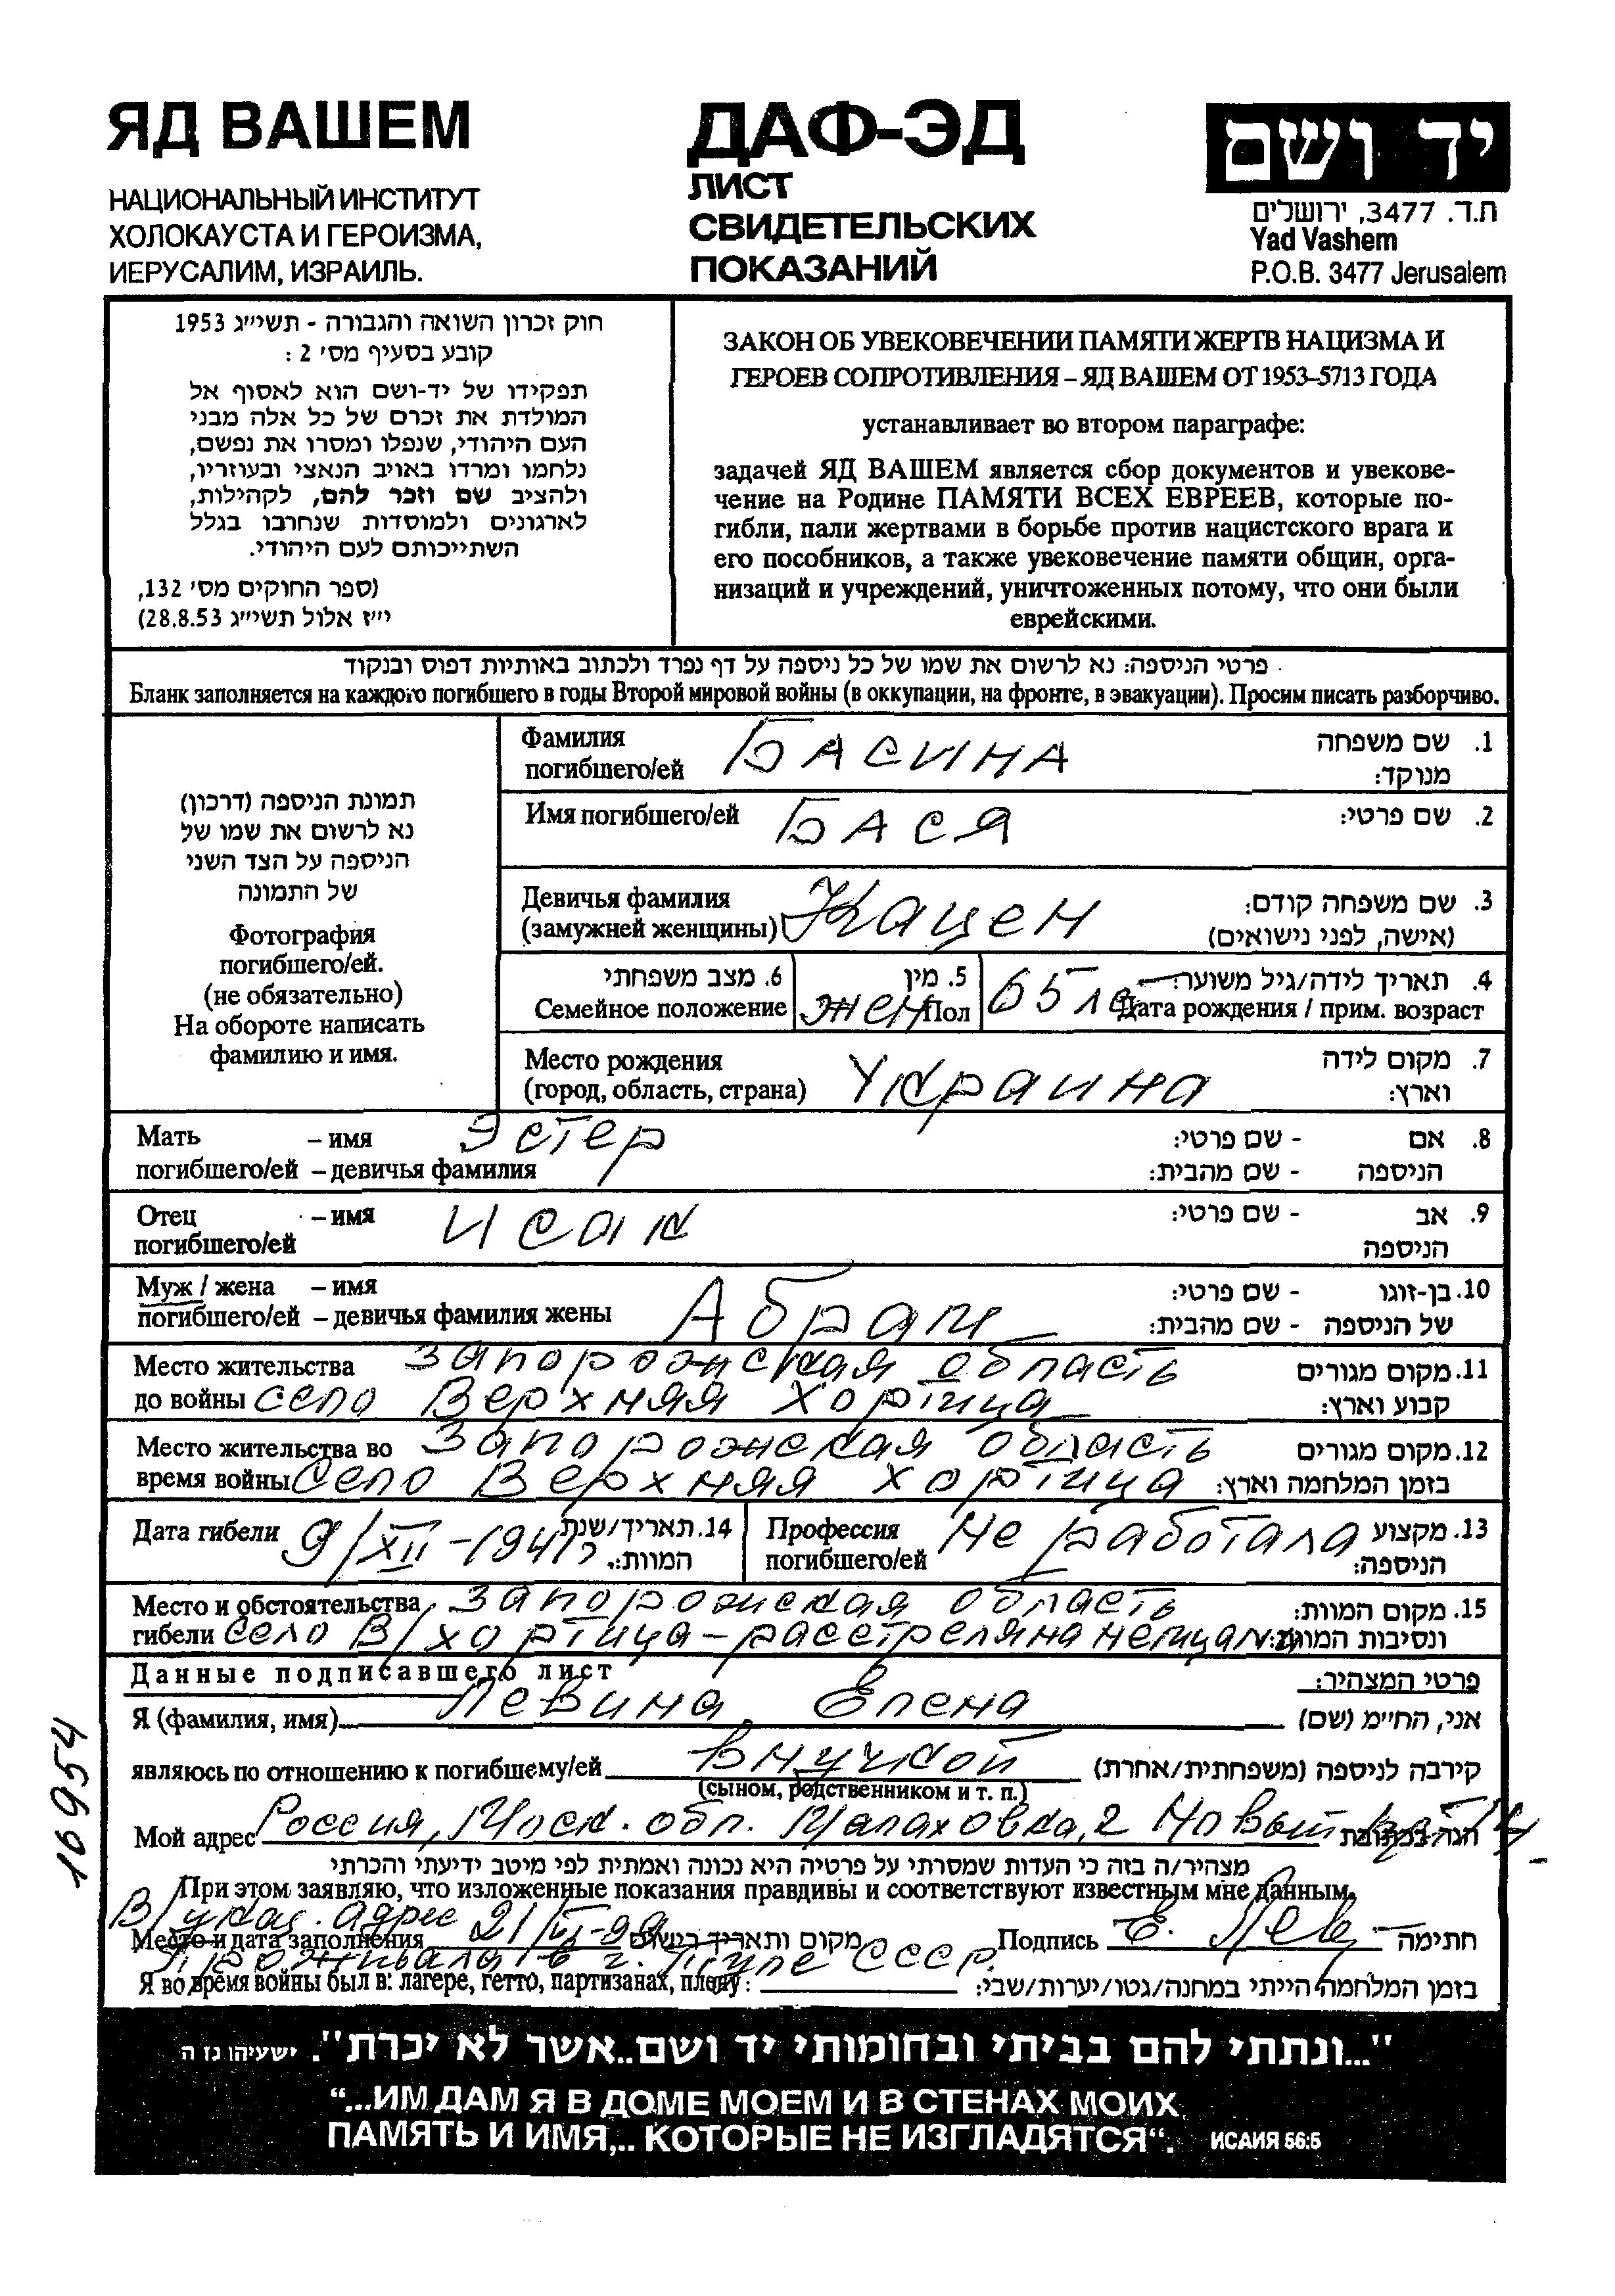 ЯД ВАШЕМ
НАЦИОНАЛЬНЫЙ ИНСТИТУТ
ХОЛОКАУСТА И ГЕРОИЗМА,
ИЕРУСАЛИМ, ИЗРАИЛЬ.
ДАФ-ЭД
ЛИСТ
СВИДЕТЕЛЬСКИХ
ПОКАЗАНИЙ
יד ושם
ת.ד. 3477, ירושלים
Yad Vashem
P.O.B. 3477 Jerusalem
חוק זכרון השואה והגבורה - תשי״ג 1953
קובע בסעיף מס׳ 2 :
תפקידו של יד-ושם הוא לאסוף אל
המולדת את זכרם של כל אלה מבני
העם היהודי, שנפלו ומסרו את נפשם,
נלחמו ומרדו באויב הנאצי ובעוזריו,
ולהציב שם וזכר להם, לקהילות,
לארגונים ולמוסדות שנחרבו בגלל
השתייכותם לעם היהודי.
(ספר החוקים מס׳ 132,
י״ז אלול תשי״ג 28.8.53)
ЗАКОН ОБ УВЕКОВЕЧЕНИИ ПАМЯТИ ЖЕРТВ НАЦИЗМА И
ГЕРОЕВ СОПРОТИВЛЕНИЯ – ЯД ВАШЕМ ОТ 1953-5713 ГОДА
устанавливает во втором параграфе:
задачей ЯД ВАШЕМ является сбор документов и увекове-
чение на Родине ПАМЯТИ ВСЕХ ЕВРЕЕВ, которые по-
гибли, пали жертвами в борьбе против нацистского врага и
его пособников, а также увековечение памяти общин, орга-
низаций и учреждений, уничтоженных потому, что они были
еврейскими.
פרטי הניספה: נא לרשום את שמו של כל ניספה על דף נפרד ולכתוב באותיות דפוס ובנקוד
Бланк заполняется на каждого погибшего в годы Второй мировой войны (в оккупации, на фронте, в эвакуации). Просим писать разборчиво.
תמונת הניספה (דרכון)
נא לרשום את שמו של
הניספה על הצד השני
של התמונה
Фотография
погибшего/ей.
(не обязательно)
На обороте написать
фамилию и имя.
Фамилия БАСИНА 1. שם משפחה
погибшего/ей מנוקד:
Имя погибшего/ей БАСЯ 2. שם פרטי:
Девичья фамилия Кацен 3. שם משפחה קודם:
(замужней женщины) (אישה, לפני נישואים)
6. מצב משפחתי 5. מין 4. תאריך לידה/גיל משוער:
Семейное положение жен Пол 65 лет Дата рождения / прим. возраст
Место рождения Украина 7. מקום לידה
(город, область, страна) וארץ:
Мать – имя Эстер 8. אם - שם פרטי:
погибшего/ей – девичья фамилия הניספה - שם מהבית:
Отец – имя Исак 9. אב - שם פרטי:
погибшего/ей הניספה
Муж / жена – имя Абрам 10. בן-זוגו - שם פרטי:
погибшего/ей – девичья фамилия жены של הניספה - שם מהבית:
Место жительства Запорожская область 11. מקום מגורים
до войны село Верхняя Хортица קבוע וארץ:
Место жительства во Запорожская область 12. מקום מגורים
время войны село Верхняя Хортица בזמן המלחמה וארץ:
Дата гибели 9/XII-1941г 14. תאריך/שנת המוות:
Профессия Не работала 13. מקצוע
погибшего/ей הניספה:
Место и обстоятельства Запорожская область 15. מקום המוות:
гибели село В/Хортица – расстреляна немцами ונסיבות המוות:
Данные подписавшего лист פרטי המצהיר:
Я (фамилия, имя) Левина Елена אני, החי״מ (שם)
являюсь по отношению к погибшему/ей внучкой קירבה לניספה (משפחתית/אחרת)
(сыном, родственником и т. п.)
Мой адрес Россия, Моск. обл. Малаховка, 2 Новый הגר בכתובת
מצהיר/ה בזה כי העדות שמסרתי על פרטיה היא נכונה ואמתית לפי מיטב ידיעתי והכרתי
При этом заявляю, что изложенные показания правдивы и соответствуют известным мне данным.
В/указ. адрес 21/VI-99
Место и дата заполнения מקום ותאריך רישום Подпись Е. Лев חתימה
Проживала в г. Туле СССР.
Я во время войны был в: лагере, гетто, партизанах, плену: בזמן המלחמה הייתי במחנה/גטו/יערות/שבי:
16954
״...ונתתי להם בביתי ובחומותי יד ושם..אשר לא יכרת״. ישעיהו נז ה
“...ИМ ДАМ Я В ДОМЕ МОЕМ И В СТЕНАХ МОИХ
ПАМЯТЬ И ИМЯ,.. КОТОРЫЕ НЕ ИЗГЛАДЯТСЯ“. ИСАИЯ 56:5